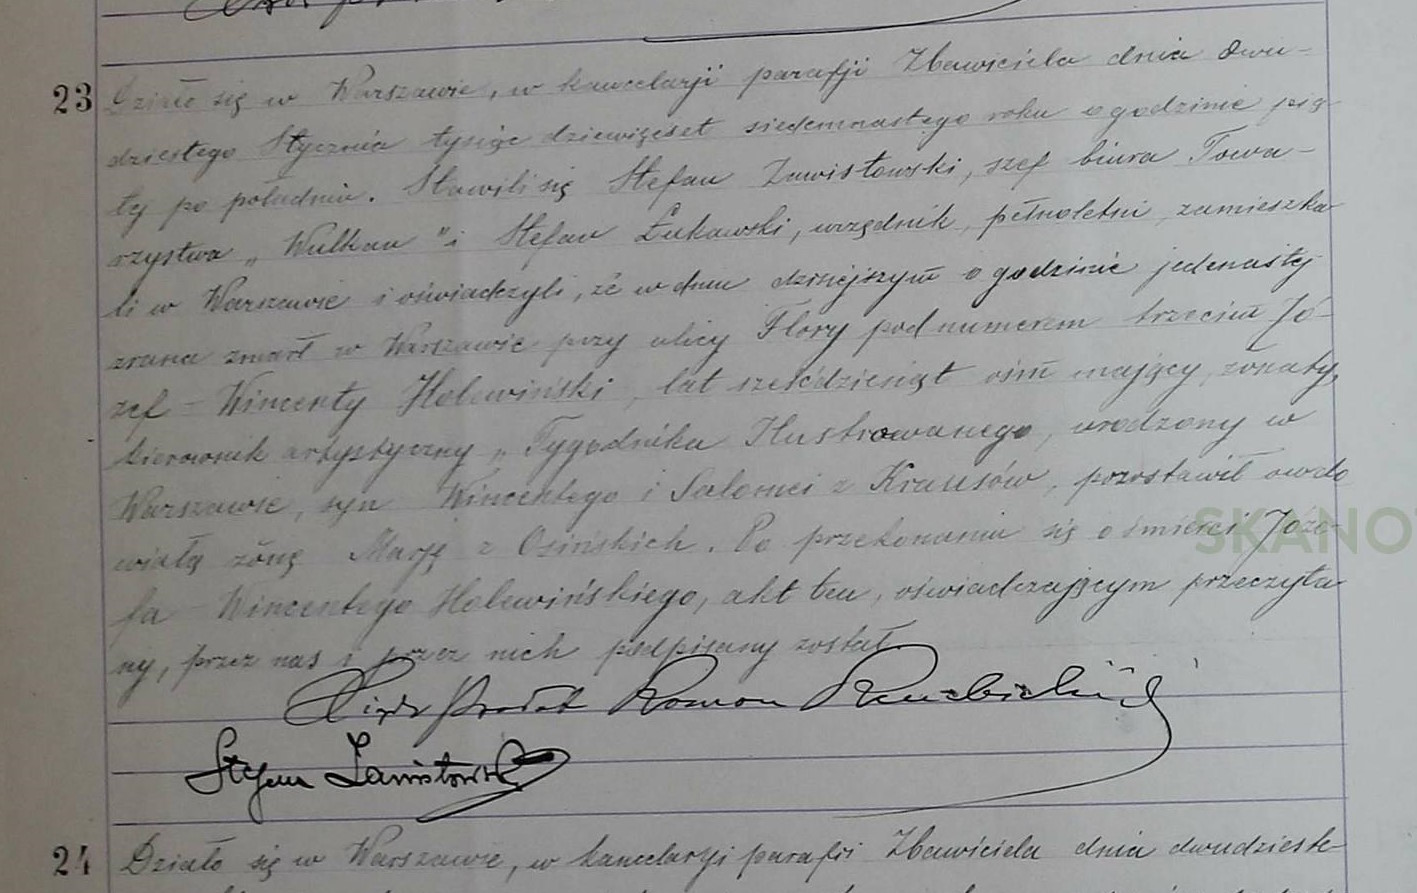 23 Działo się w Warszawie, w kancelarji parafji Zbawiciela dnia dwu-
dziestego Stycznia tysiąc dziewięćset siedemnastego roku o godzinie pią-
tej po południu. Stawili się Stefan Zawistowski, szef biura Towa-
rzystwa „Wulkan" i Stefan Łukawski, urzędnik, pełnoletni, zamieszka-
li w Warszawie i oświadczyli, że w dniu dzisiejszym o godzinie jedenastej
zrana zmarł w Warszawie przy ulicy Flory pod numerem trzecim Jó-
zef-Wincenty Holewiński, lat sześćdziesiąt ośm mający, żonaty,
kierownik artystyczny „Tygodnika Ilustrowanego, urodzony w
Warszawie, syn Wincentego i Salomei z Krausów, pozostawił owdo
wiałą żonę Marję z Osińskich. Po przekonaniu się o śmierci Józe-
fa-Wincentego Holewińskiego, akt ten, oświadczającym przeczyta
ny, przez nas i przez nich podpisany został.
Ksiądz Prałat Roman Rembieliński
Stefan Zawistowski
24 Działo się w Warszawie, w kancelaryi parafii Zbawiciela dnia dwudzieste-
SKANO